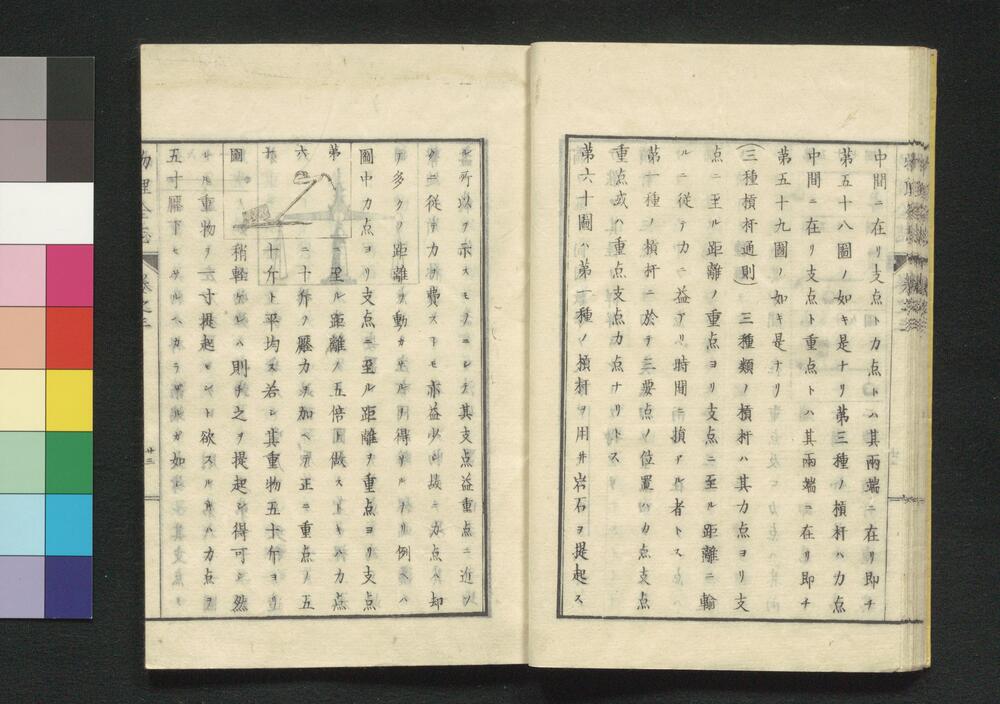 中間ニ在リ支点ト力点トハ其兩端ニ在リ即チ
第五十八圖ノ如キ是ナリ第三種ノ槓杆ハ力点
中間ニ在リ支点ト重点トハ其兩端ニ在リ即チ
第五十九圖ノ如キ是ナリ
(三種槓杆通則)三種類ノ槓杆ハ其力点ヨリ支
点ニ至ル距離ノ重点ヨリ支点ニ至ル距離ニ輸
ルニ従テ力ニ益アリ時間ニ損アル者トス
第一種ノ槓杆ニ於テ三要点ノ位置ハ力点支点
重点或ハ重点支点力点ナリトス
第六十圖ハ第一種ノ槓杆ヲ用井岩石ヲ提起ス
ル所以ヲ示スモノニシテ其支点益重点ニ近ツ
クニ従テ力ヲ費ストモ亦益少シ故ニ力点ハ却
テ多クノ距離ヲ動カサルヲ得サルナリ例スハ
圖中力点ヨリ支点ニ至ル距離ヲ重点ヨリ支点
第ニ至ル距離ノ五倍ト做ストキハ力点
六ニ十斤ノ壓力ヲ加ヘテ正ニ重点ノ五
十十斤ト平均ス若シ其重物五十斤ヨリ
圖稍輕ケレハ則チ之ヲ提起シ得可シ然
レトモ重物ヲ一寸提起セント欲スル時ハ力点ヲ
五寸壓下セサルヘカラサルカ如シ
物理全志 卷之三
廿三